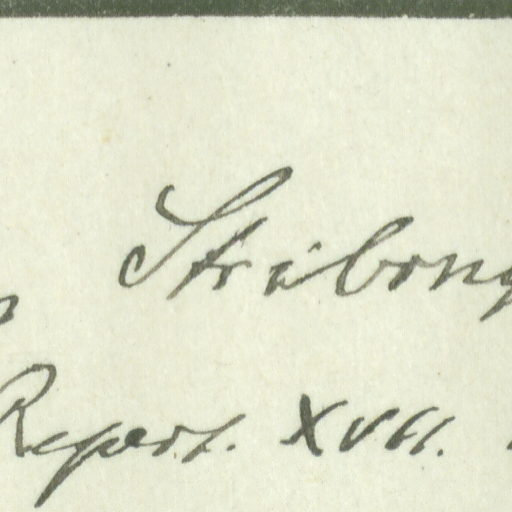 Strabong
Repert. XVII.